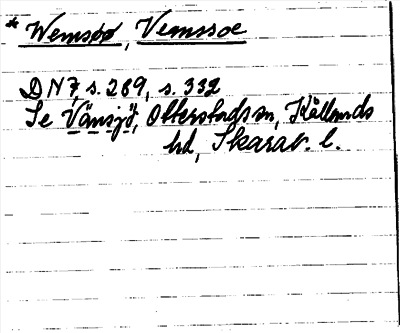 * Wemsöö, Vemssoe
DN 7, s. 289, s. 332
Se Vänsjö, Otterstads sn, Kållands
hd, Skarab. l.